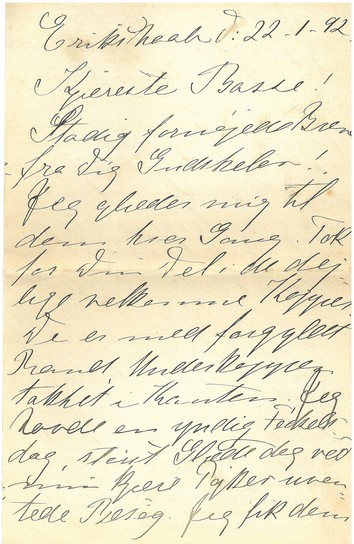 Erikshaab d: 22-1-92.
Kjæreste Basse!
Stadig fornøjede Breve
fra dig Gudskelov!
Jeg glæder mig til
dem hver Gang. Tak
for Din Del i de dej
lige velkomne Kopper
De er med forgyldt
Rand Underkoppen
takket i Kanten. Jeg
havde en yndig Fødsels-
dag, stort Glædedeg ved
min kjære Dykes uven
tede Besøg. Jeg fik dem